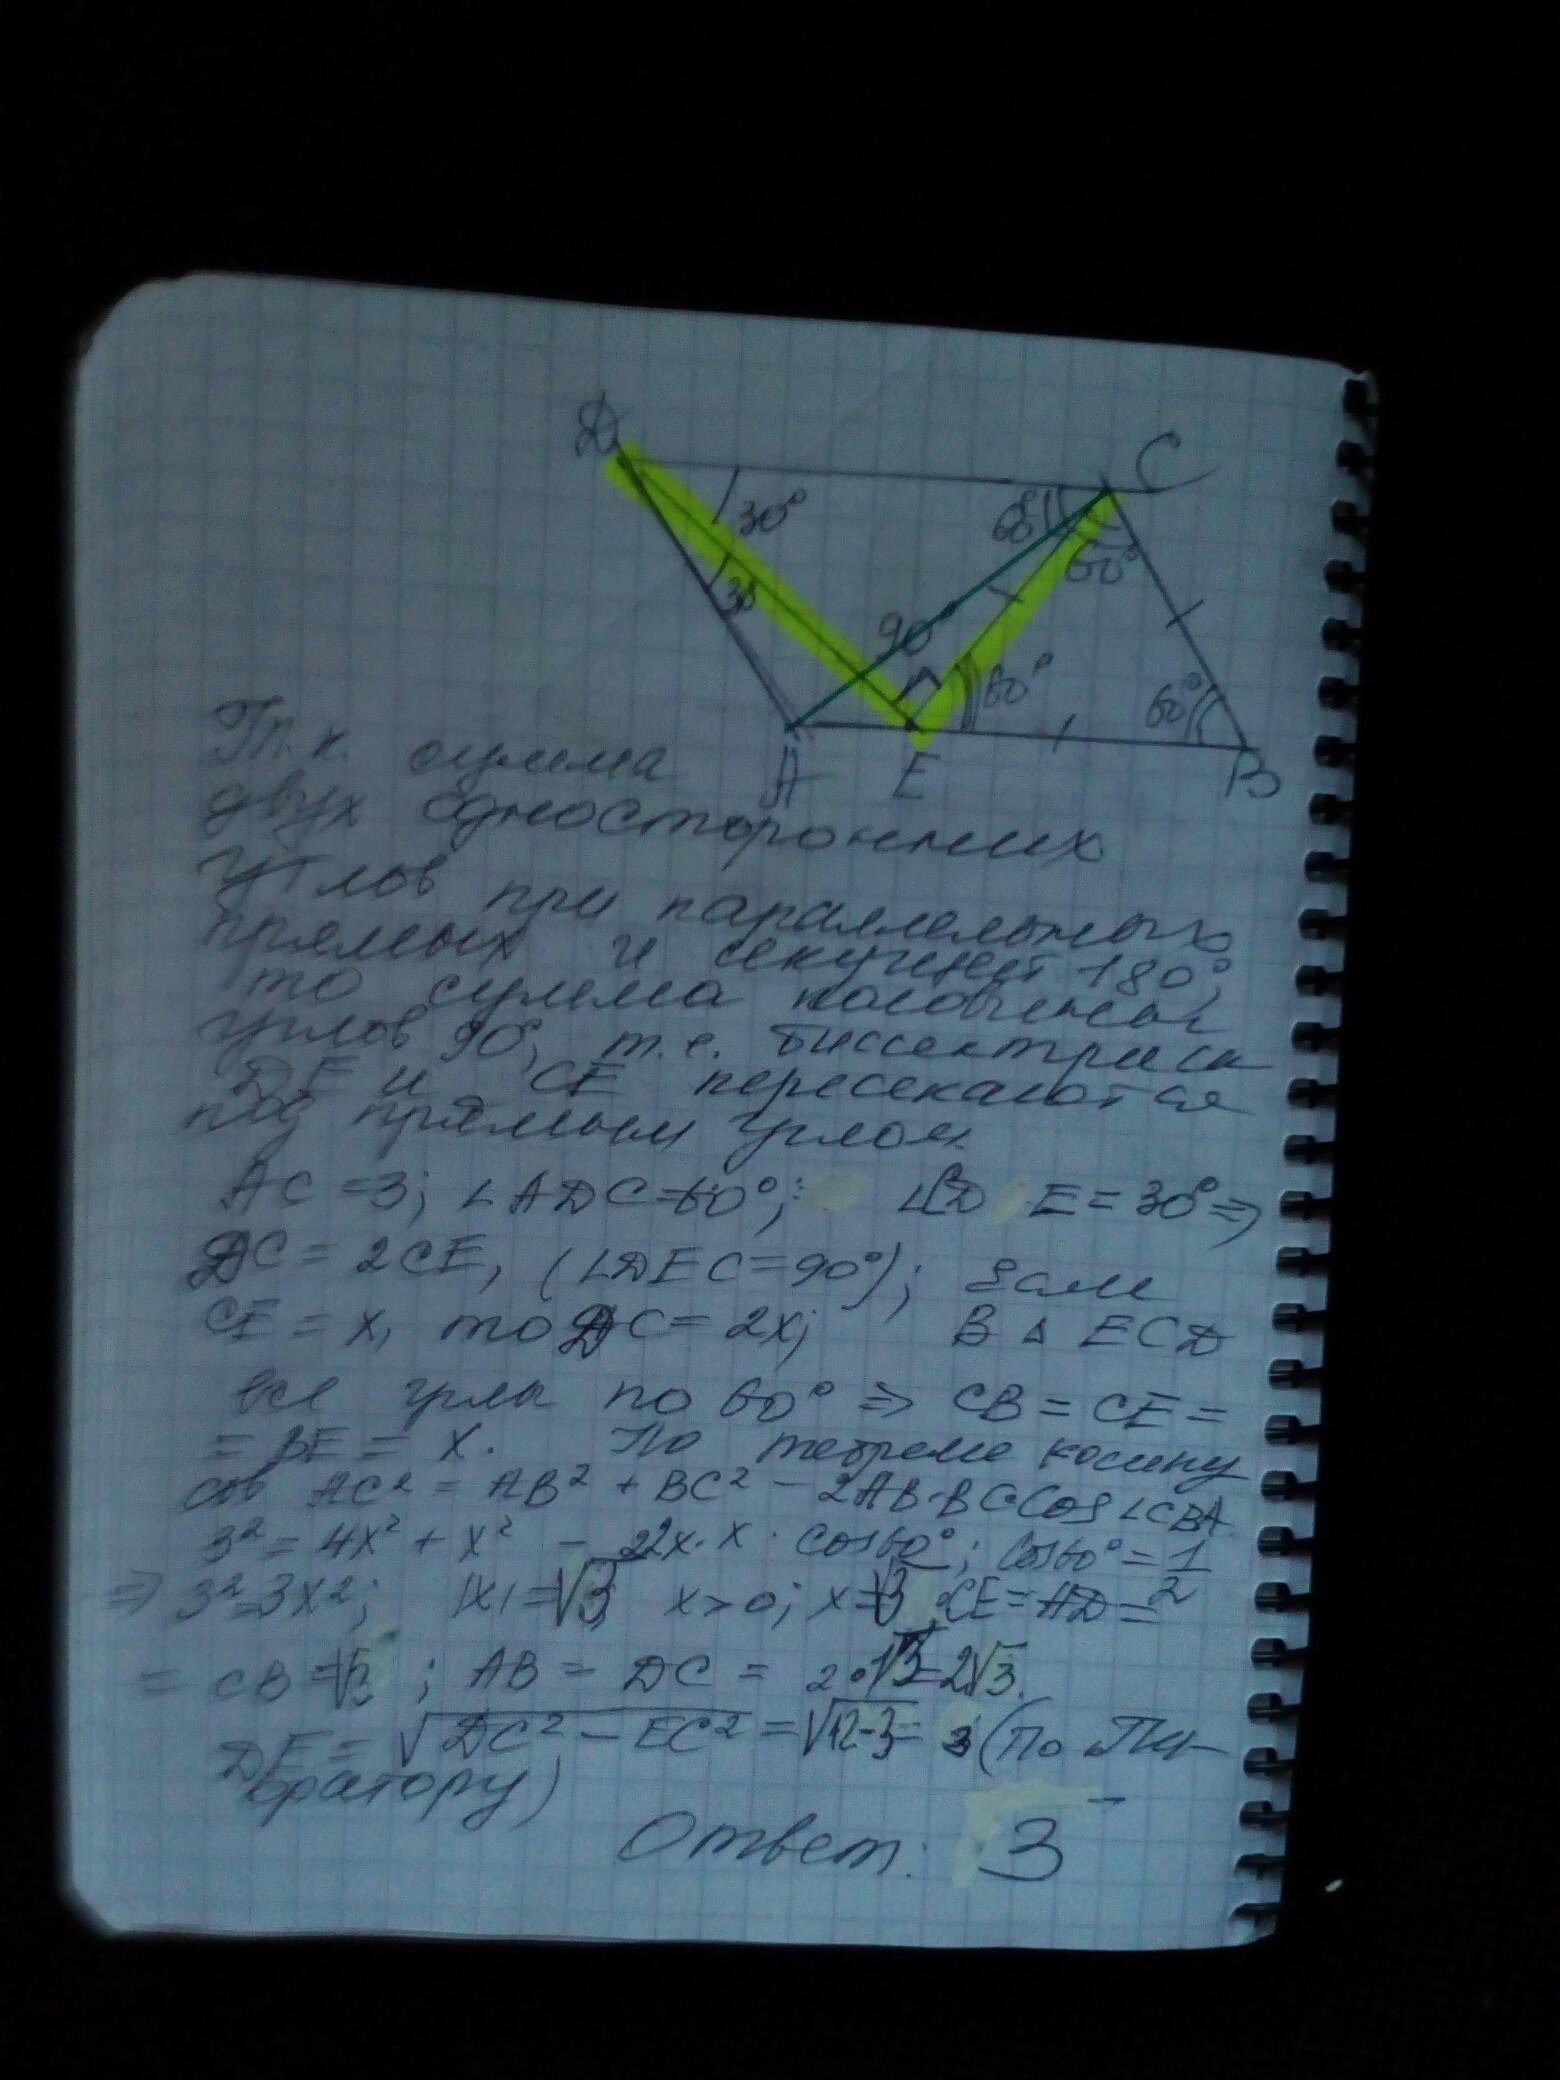 D
C
30°
60°
60°
30
90°
60°
60°
A
E
B
Т.к. сумма
двух односторонних
углов при параллельных
прямых и секущей 180°,
то сумма половинок
углов 90°, т.е. биссектрисы
DE и CE пересекаются
под прямым углом
AC = 3; ∠ADC=60°; E = 30° ⇒
DC = 2CE, (∠DEC=90°); Если
CE = x, то DC = 2x; В Δ ECD
все углы по 60° ⇒ CB = CE =
= BE = x. По теореме косину
сов AC² = AB² + BC² - 2AB·BC·Cos ∠CBA.
3² = 4x² + x² - 2·2x·x·cos60°; Cos60° = 1/2
⇒ 3²=3x²; |x| = √3; x>0; x=√3 CE = AD =
= CB = √3; AB = DC = 2·√3=2√3.
DE = √DC² - EC² = √12-3 = 3 (По Пи-
фагору)
Ответ: 3